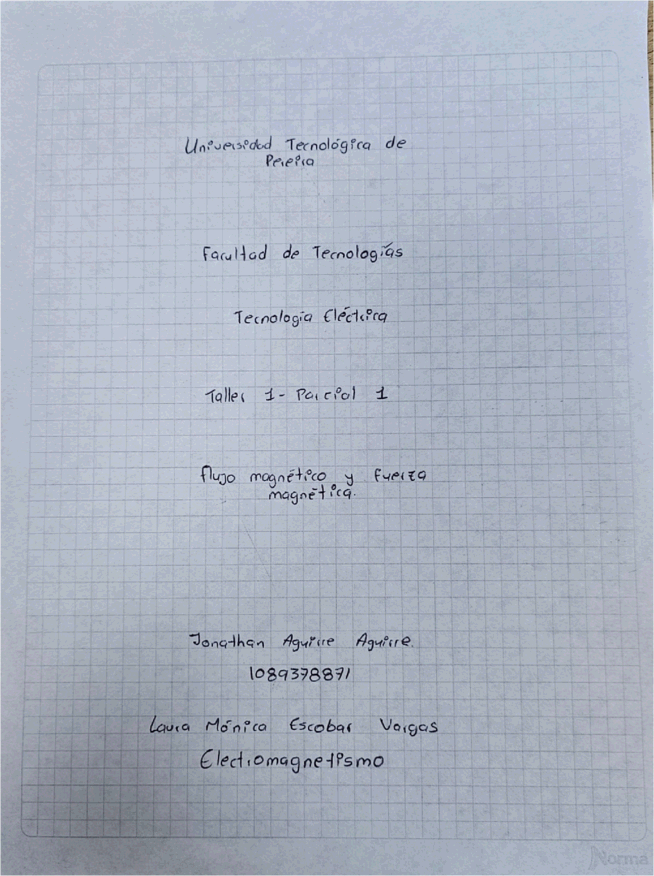 Universidad Tecnológica de
Pereira
Facultad de Tecnologías
Tecnología Eléctrica
Taller 1 - Parcial 1
flujo magnético y fuerza
magnética.
Jonathan Aguirre Aguirre.
1089378871
Laura Mónica Escobar Vargas
Electromagnetismo
Norma